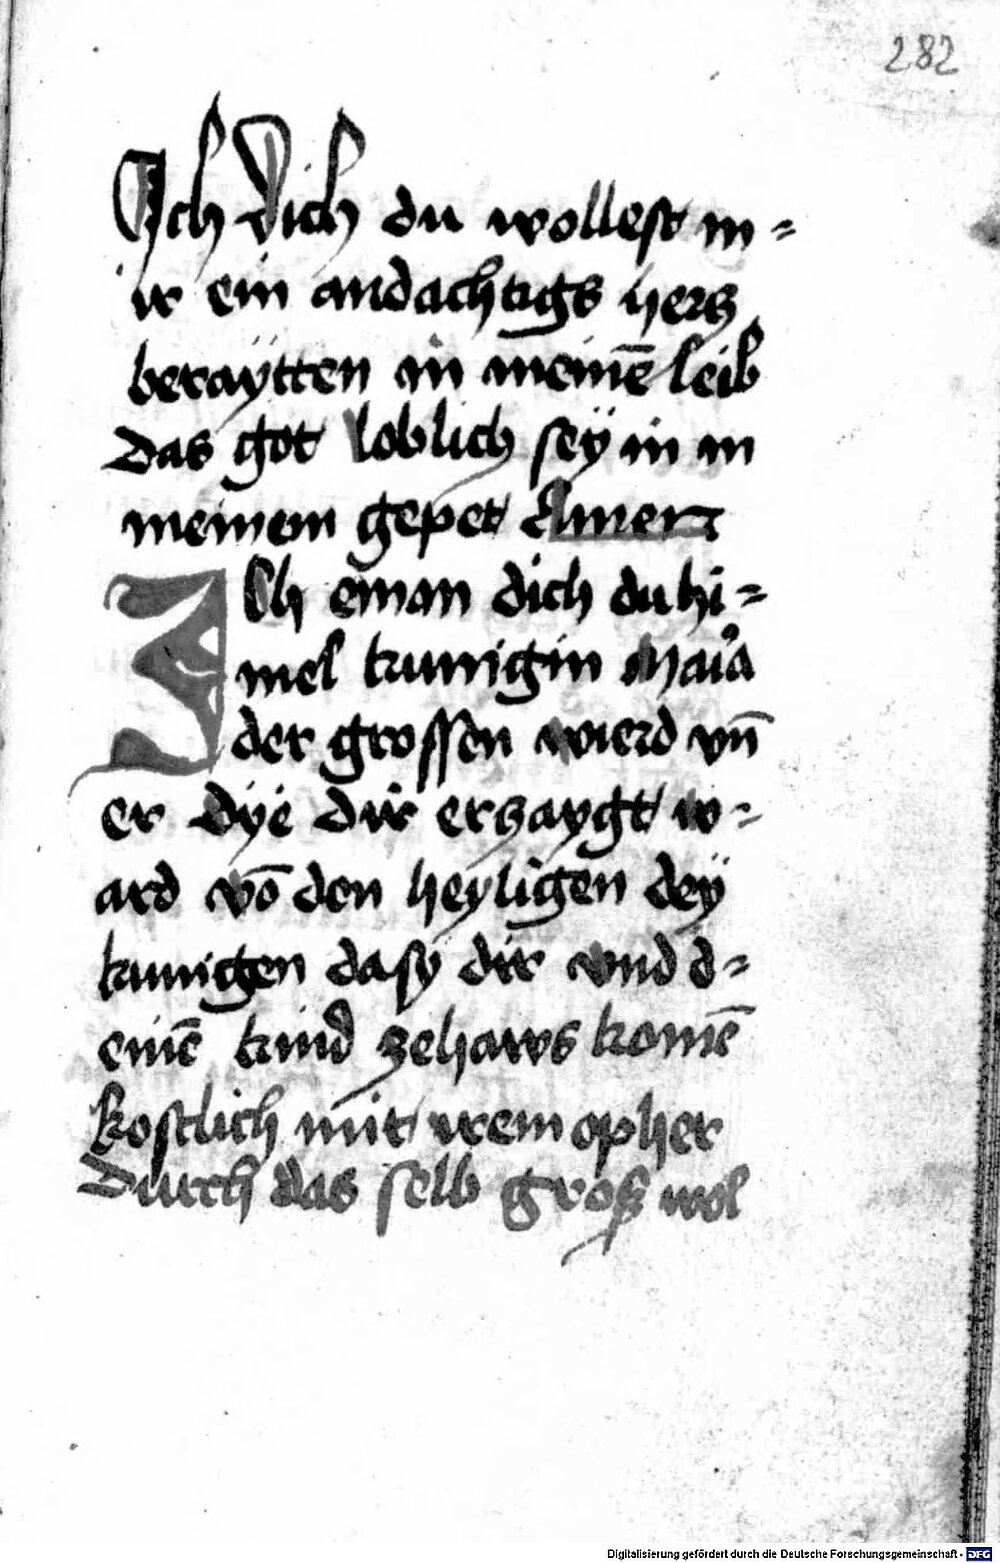 282
Ich Dich du wollest m⸗
ir ein andachtigs hercz
beraÿtten in meinē leib
Das got loblich seÿ in m
meinem gepet Amen
ICh eman dich du hi⸗
mel kunigin Maiᵃa
der grossen wierd vn̄
er dÿe dir erzaygt w⸗
ard vō den heyligen deÿ
kunigen da sy dir vnd d⸗
einē kind ze haws komē
kostlich mit irem opher
Durch das selb groß wol
Digitalisierung gefördert durch die Deutsche Forschungsgemeinschaft - DFG